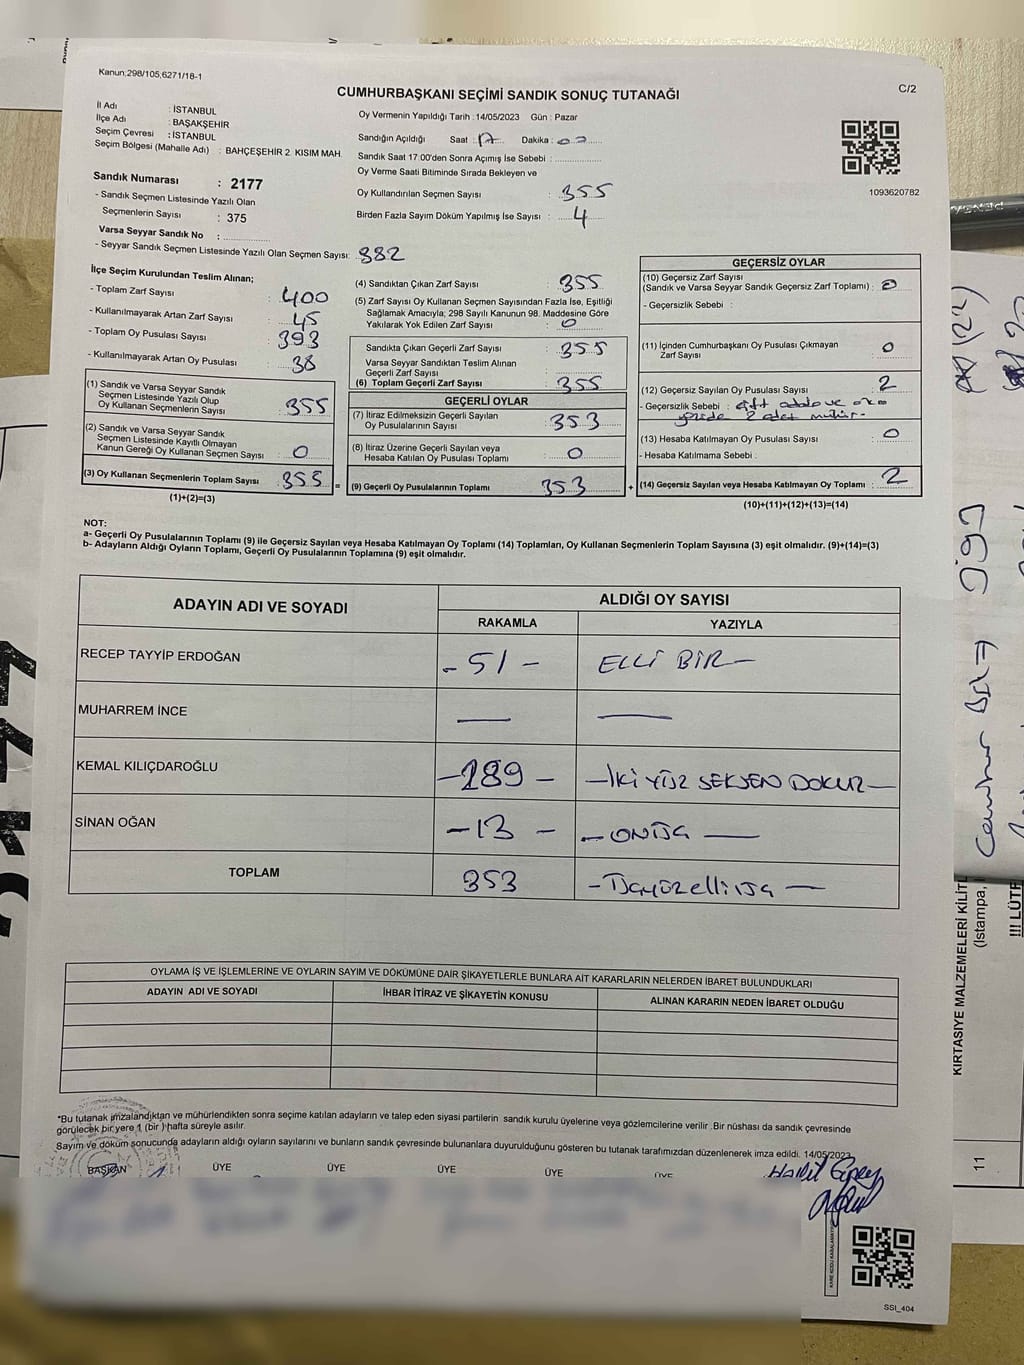 Kanun;298/105,6271/18-1
C/2
CUMHURBAŞKANI SEÇİMİ SANDIK SONUÇ TUTANAĞI
İl Adı : İSTANBUL
İlçe Adı : BAŞAKŞEHİR
Seçim Çevresi : İSTANBUL
Seçim Bölgesi (Mahalle Adı) : BAHÇEŞEHİR 2. KISIM MAH.
Sandık Numarası : 2177
- Sandık Seçmen Listesinde Yazılı Olan
Seçmenlerin Sayısı : 375
Varsa Seyyar Sandık No :
- Seyyar Sandık Seçmen Listesinde Yazılı Olan Seçmen Sayısı: 382
Oy Vermenin Yapıldığı Tarih : 14/05/2023 Gün : Pazar
Sandığın Açıldığı Saat : 17 Dakika :
Sandık Saat 17:00'den Sonra Açımış İse Sebebi :
Oy Verme Saati Bitiminde Sırada Bekleyen ve
Oy Kullandırılan Seçmen Sayısı : 355
Birden Fazla Sayım Döküm Yapılmış İse Sayısı : 4
1093620782
İlçe Seçim Kurulundan Teslim Alınan;
- Toplam Zarf Sayısı : 400
- Kullanılmayarak Artan Zarf Sayısı : 45
- Toplam Oy Pusulası Sayısı : 393
- Kullanılmayarak Artan Oy Pusulası : 38
(1) Sandık ve Varsa Seyyar Sandık
Seçmen Listesinde Yazılı Olup
Oy Kullanan Seçmenlerin Sayısı : 355
(2) Sandık ve Varsa Seyyar Sandık
Seçmen Listesinde Kayıtlı Olmayan
Kanun Gereği Oy Kullanan Seçmen Sayısı : 0
(3) Oy Kullanan Seçmenlerin Toplam Sayısı : 355
(1)+(2)=(3)
(4) Sandıktan Çıkan Zarf Sayısı : 355
(5) Zarf Sayısı Oy Kullanan Seçmen Sayısından Fazla İse, Eşitliği
Sağlamak Amacıyla; 298 Sayılı Kanunun 98. Maddesine Göre
Yakılarak Yok Edilen Zarf Sayısı : 0
Sandıkta Çıkan Geçerli Zarf Sayısı : 355
Varsa Seyyar Sandıktan Teslim Alınan
Geçerli Zarf Sayısı :
(6) Toplam Geçerli Zarf Sayısı : 355
GEÇERLİ OYLAR
(7) İtiraz Edilmeksizin Geçerli Sayılan
Oy Pusulalarının Sayısı : 353
(8) İtiraz Üzerine Geçerli Sayılan veya
Hesaba Katılan Oy Pusulası Toplamı : 0
= (9) Geçerli Oy Pusulalarının Toplamı 353
GEÇERSİZ OYLAR
(10) Geçersiz Zarf Sayısı
(Sandık ve Varsa Seyyar Sandık Geçersiz Zarf Toplamı) : 0
- Geçersizlik Sebebi :
(11) İçinden Cumhurbaşkanı Oy Pusulası Çıkmayan
Zarf Sayısı : 0
(12) Geçersiz Sayılan Oy Pusulası Sayısı : 2
- Geçersizlik Sebebi : çift 2 adet mühür-
(13) Hesaba Katılmayan Oy Pusulası Sayısı : 0
- Hesaba Katılmama Sebebi :
+ (14) Geçersiz Sayılan veya Hesaba Katılmayan Oy Toplamı : 2
(10)+(11)+(12)+(13)=(14)
NOT:
a- Geçerli Oy Pusulalarının Toplamı (9) ile Geçersiz Sayılan veya Hesaba Katılmayan Oy Toplamı (14) Toplamları, Oy Kullanan Seçmenlerin Toplam Sayısına (3) eşit olmalıdır. (9)+(14)=(3)
b- Adayların Aldığı Oyların Toplamı, Geçerli Oy Pusulalarının Toplamına (9) eşit olmalıdır.
ADAYIN ADI VE SOYADI
ALDIĞI OY SAYISI
RAKAMLA YAZIYLA
RECEP TAYYİP ERDOĞAN - 51 - ELLİ BİR -
MUHARREM İNCE — —
KEMAL KILIÇDAROĞLU - 289 - - İKİ YÜZ SEKSEN DOKUZ -
SİNAN OĞAN - 13 - - ONÜÇ -
TOPLAM 353 - Üçyüzelliüç -
OYLAMA İŞ VE İŞLEMLERİNE VE OYLARIN SAYIM VE DÖKÜMÜNE DAİR ŞİKAYETLERLE BUNLARA AİT KARARLARIN NELERDEN İBARET BULUNDUKLARI
ADAYIN ADI VE SOYADI İHBAR İTİRAZ VE ŞİKAYETİN KONUSU ALINAN KARARIN NEDEN İBARET OLDUĞU
*Bu tutanak imzalandıktan ve mühürlendikten sonra seçime katılan adayların ve talep eden siyasi partilerin sandık kurulu üyelerine veya gözlemcilerine verilir .Bir nüshası da sandık çevresinde
görülecek bir yere 1 (bir ) hafta süreyle asılır.
Sayım ve döküm sonucunda adayların aldığı oyların sayılarını ve bunların sandık çevresinde bulunanlara duyurulduğunu gösteren bu tutanak tarafımızdan düzenlenerek imza edildi. 14/05/2023
BAŞKAN ÜYE ÜYE ÜYE ÜYE ÜYE
SSI_404
KIRTASİYE MALZEMELERİ KİLİTL
(Istampa,
!!! LÜTF
11